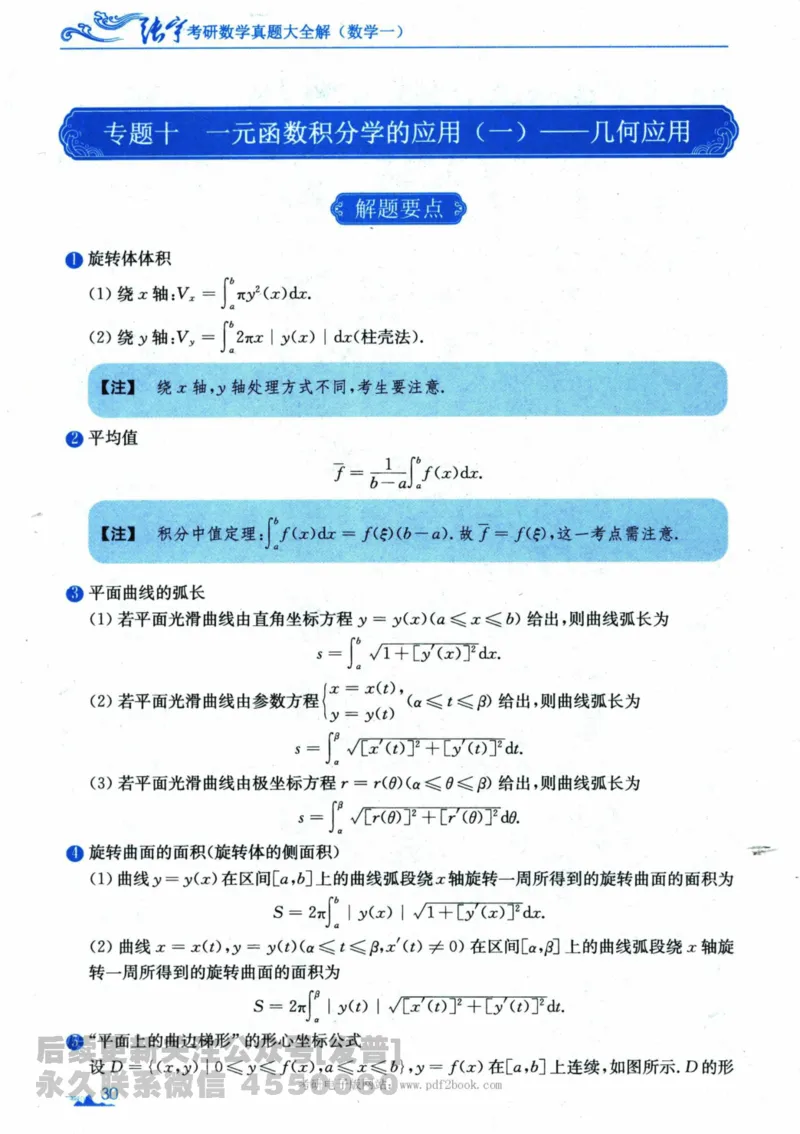 张宇考研数学真题大全解（数学一）
专题十 一元函数积分学的应用（一）——几何应用
解题要点
1 旋转体体积
(1) 绕 x 轴:Vₓ = ∫ₐᵇ πy²(x)dx.
(2) 绕 y 轴:V_y = ∫ₐᵇ 2πx | y(x) | dx(柱壳法).
【注】 绕 x 轴,y 轴处理方式不同,考生要注意.
2 平均值
f̄ = 1/(b−a) ∫ₐᵇ f(x)dx.
【注】 积分中值定理:∫ₐᵇ f(x)dx = f(ξ)(b−a). 故 f̄ = f(ξ),这一考点需注意.
3 平面曲线的弧长
(1) 若平面光滑曲线由直角坐标方程 y = y(x)(a ⩽ x ⩽ b) 给出,则曲线弧长为
s = ∫ₐᵇ √(1+[y′(x)]²) dx.
(2) 若平面光滑曲线由参数方程 { x = x(t), y = y(t) (α ⩽ t ⩽ β) 给出,则曲线弧长为
s = ∫_α^β √([x′(t)]²+[y′(t)]²) dt.
(3) 若平面光滑曲线由极坐标方程 r = r(θ)(α ⩽ θ ⩽ β) 给出,则曲线弧长为
s = ∫_α^β √([r(θ)]²+[r′(θ)]²) dθ.
4 旋转曲面的面积(旋转体的侧面积)
(1) 曲线 y = y(x) 在区间[a,b]上的曲线弧段绕 x 轴旋转一周所得到的旋转曲面的面积为
S = 2π∫ₐᵇ | y(x) | √(1+[y′(x)]²) dx.
(2) 曲线 x = x(t),y = y(t)(α ⩽ t ⩽ β,x′(t) ≠ 0) 在区间[α,β] 上的曲线弧段绕 x 轴旋
转一周所得到的旋转曲面的面积为
S = 2π∫_α^β | y(t) | √([x′(t)]²+[y′(t)]²) dt.
5 “平面上的曲边梯形”的形心坐标公式
设 D = {(x,y) | 0 ⩽ y ⩽ f(x),a ⩽ x ⩽ b},y = f(x) 在[a,b]上连续,如图所示. D 的形
后续更新关注公众号[发普]
永久联系微信 4550060
考研电子版网站：www.pdf2book.com
30